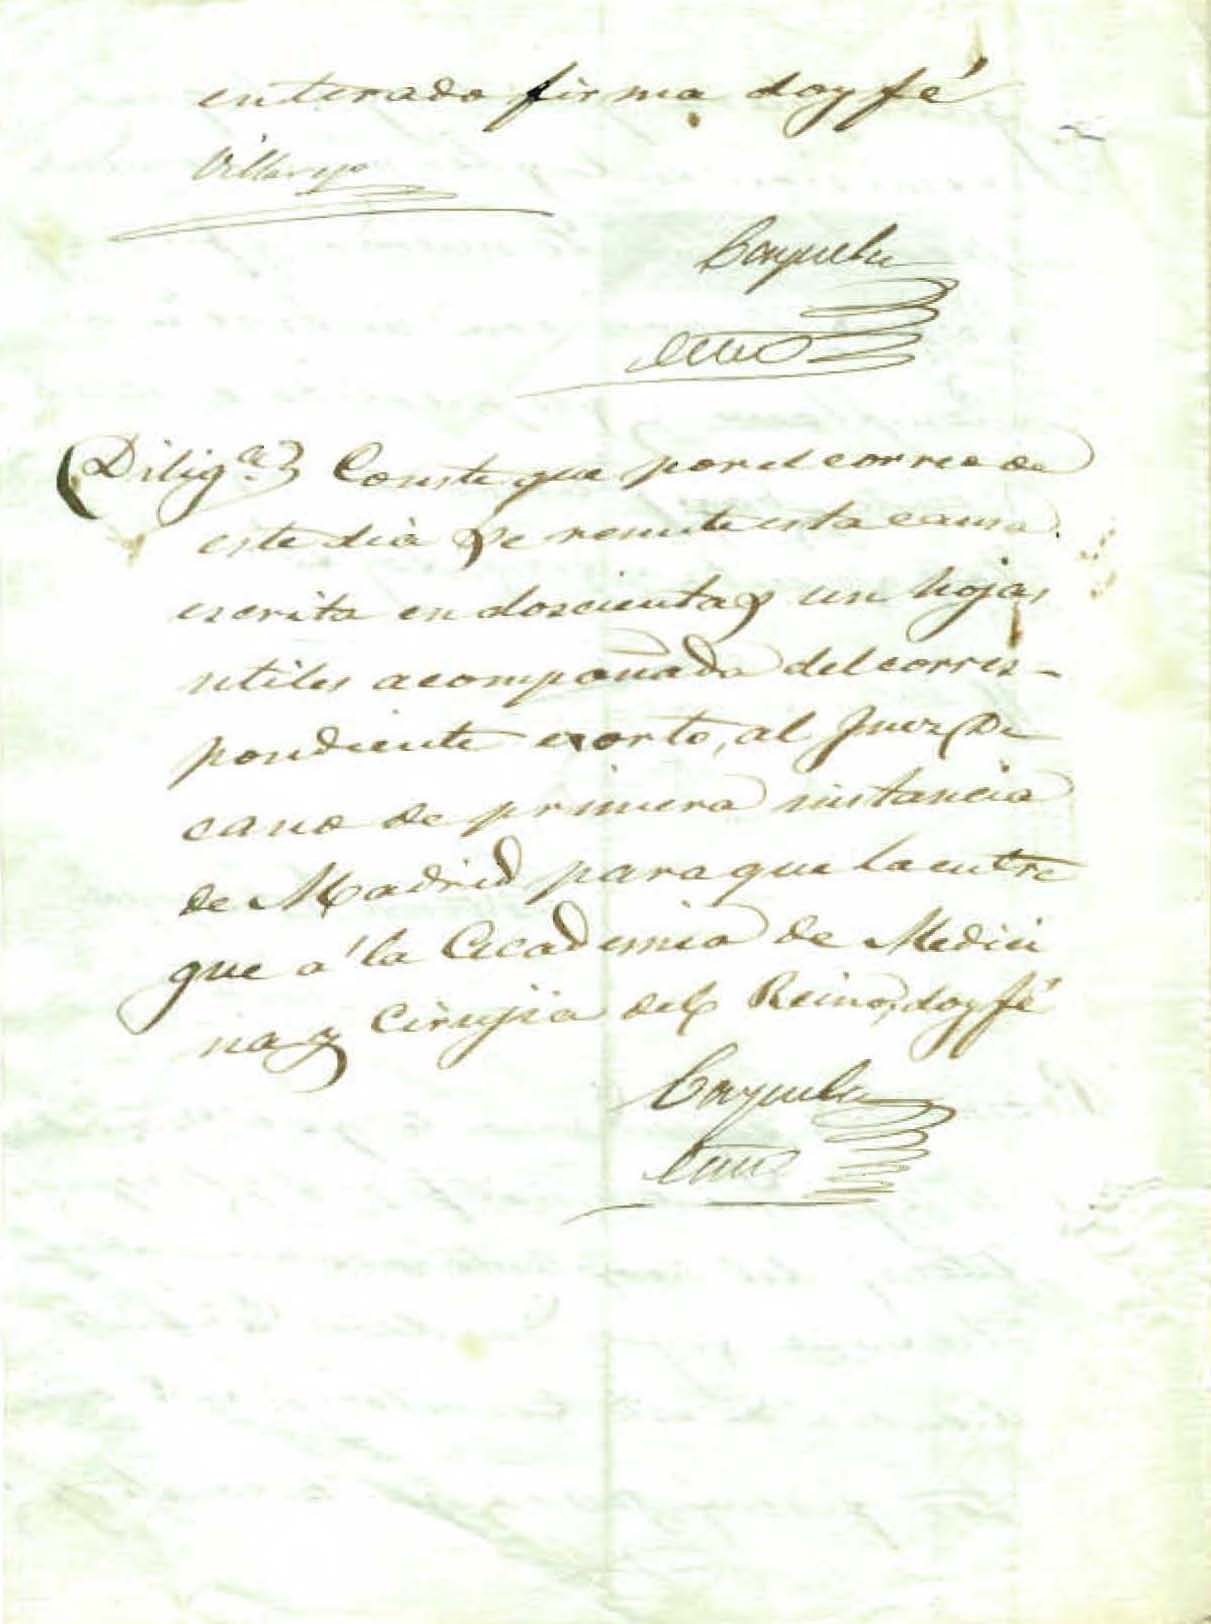 enterado firma doy fé
Villarejo
Cayuela
Dilig.ª Conste que por el correo de
este dia se remite esta causa
escrita en doscientas y un hojas
utiles acompañada del corres-
pondiente exorto, al Juez De
cano de primera instancia
de Madrid para que la entre
gue á la Academia de Medici
na y Cirujia del Reino, doy fé
Cayuela